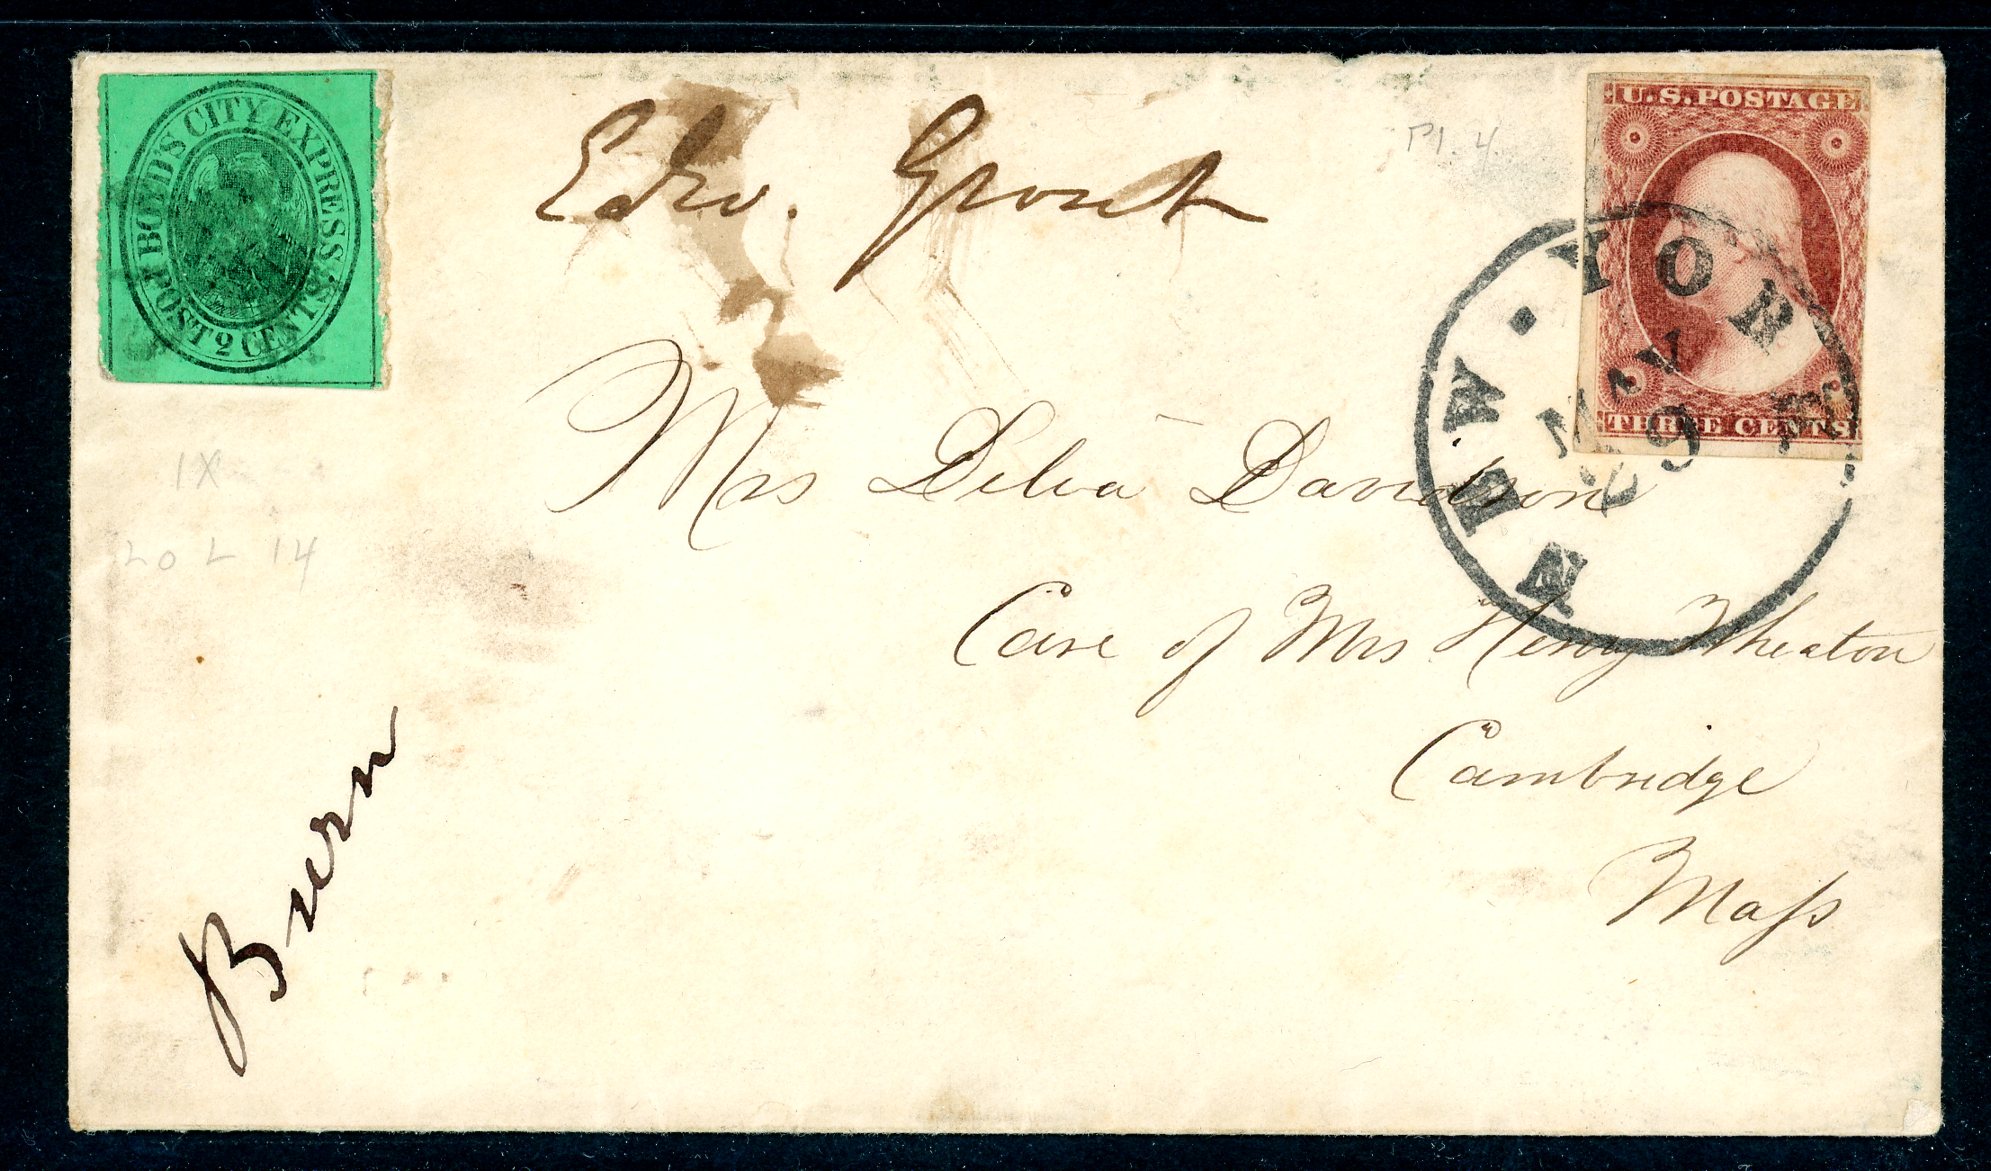 BOYD'S CITY EXPRESS
POST 2 CENTS
Edw. Grout
Pl. 4
U.S. POSTAGE
THREE CENTS
NEW · YORK
MAY
9
Mrs Delia Davidson
Care of Mrs Henry Wheaton
Cambridge
Mass
1X
20 L 14
Burn